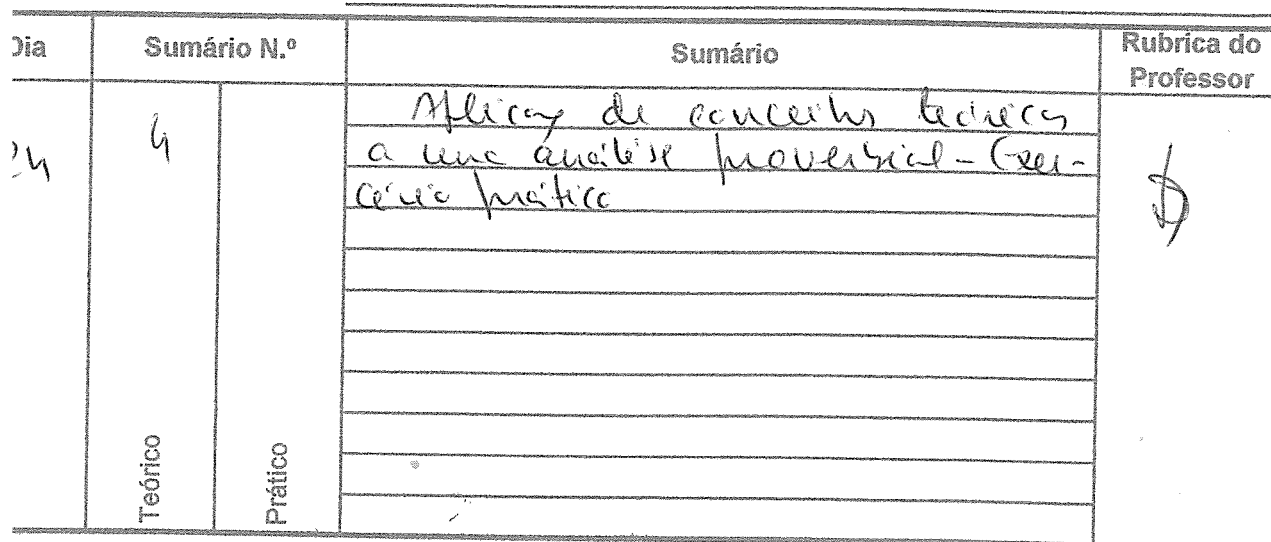 Dia Sumário N.º Sumário Rubrica do Professor
24 4 Aplicação de conceitos teóricos
a uma análise proverbial - Exer-
cício prático
Teórico Prático